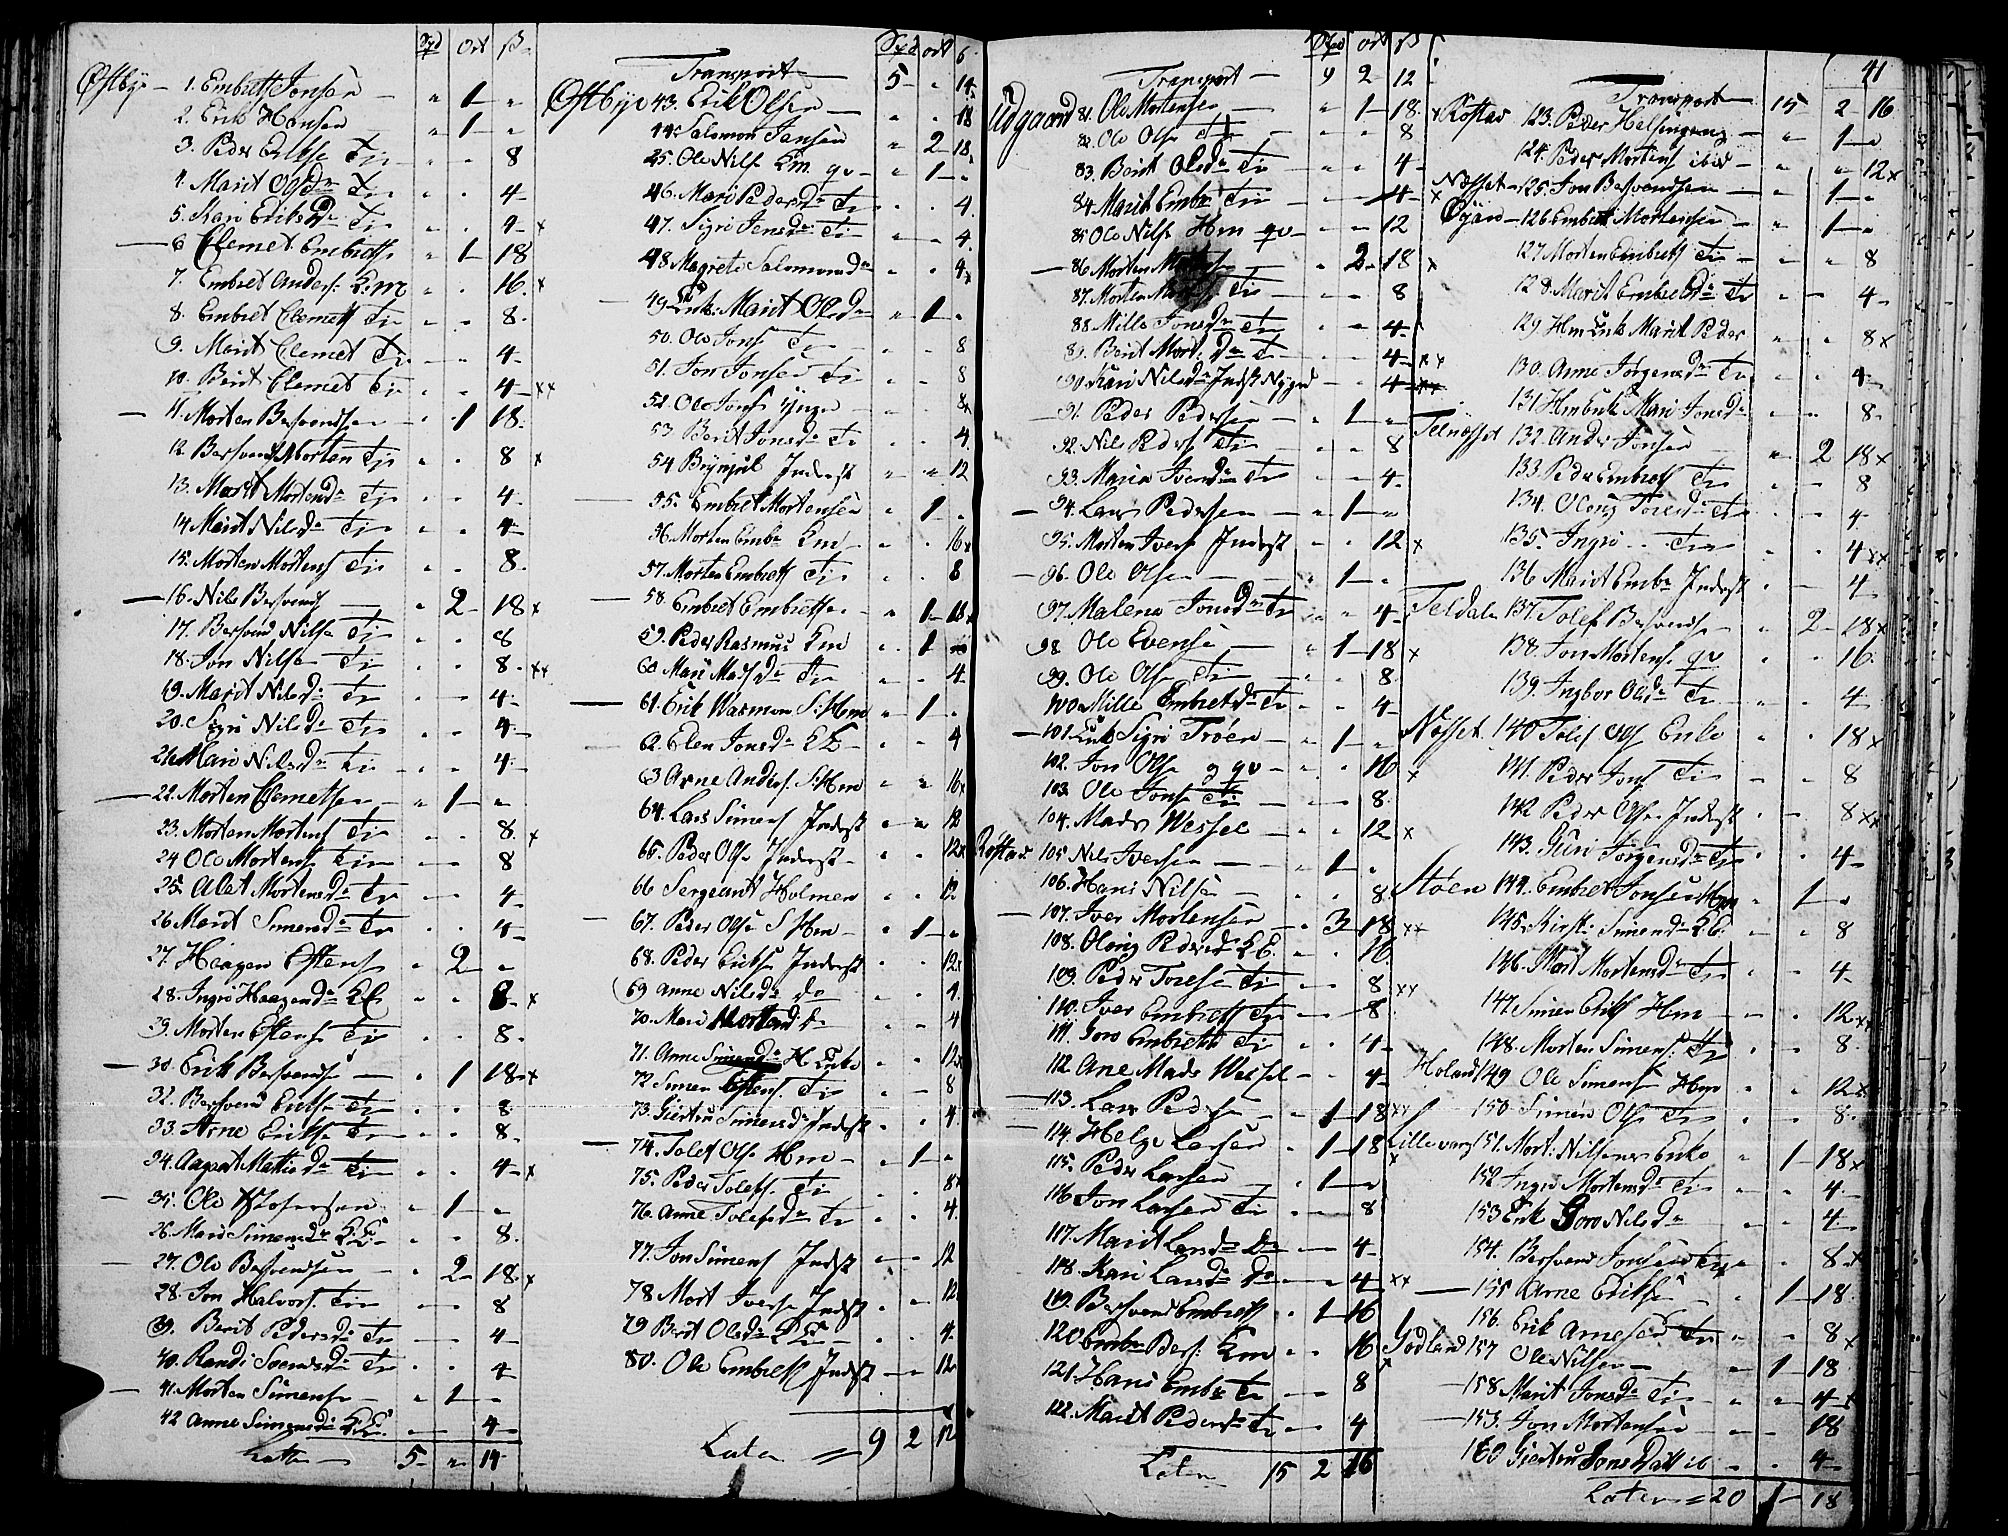 Spd Ort ß
Østbye — 1. Embret Jonsen — " 1 — "
2. Erik Hansen " 1 — "
3. Peder Erikse Tr — " — " 8
4. Marit Olsdr Tr " " 4
5. Kari Eriksdr Tr " " 4 x
— 6 Clemet Embretse " 1 — 18
7. Embret Anders: K:m " " 16. x
8. Embret Clemets Tr " " 8.
9. Marit Clemet Tr " " 4
10. Berit Clemet Tr " " 4 xx
— 11. Morten Besvendsen " 1 18.
12 Besvend Morten Tr " " 8 x
13. Marit Mortensdr Tr " " 4
14 Marit Nilsdr Tr " " 4
15. Morten Mortens Tr " " 8.
— 16. Nils Besvends — " 2 — 18 x
17. Besvend Nilse Tr " " 8
18. Jon Nilse Tr " " 8. xx
19. Marit Nilsdr Tr " " 4
20. Sigri Nilsdr Tr " " 4
21 Mari Nilsdr Tr " " 4
— 22. Morten Clemetsen — " 1 — "
23. Morten Mortens Tr " " 8. x
24 Ole Mortens Tr — " 8
25. Alet Mortensdr Tr " " 4
26 Marit Simensdr Tr " " 4
27. Haagen Estens " 2 "
28. Ingri Haagensdr KE " " 8 x
29. Morten Estens Tr " " 8.
— 30. Erik Besvendse — " 1 18 x
32. Besvend Erikse Tr " " 8
33. Arne Erikse Tr " " 8.
34. Aagaat Mattisdr Tr " " 4 x
— 35. Ole — " 1 — "
26. Mari Simensdr K.E. " " 8.
— 27. Ole Besvendsen — " 2 — 18. x
28. Jon Halvors. Tr — " 8
39. Berit Pedersdr Tr — " 4
40. Randi Svensdr Tr " " 4
— 41. Morten Simense — " 1 — "
42 Anne Simensdr K.E. — " 4
Later — 5 — " 14
Spd ort ß
Transport — 5 " 14
Østbye 43. Erik Olsen — " " 18
44. Salomon Jensen " 2 — 18
25. Ole Nils Km. qv — " 1 — "
46. Mari Pedersdr Tr " " 4.
47. Sigri Jensdr Tr " " 4.
48. Magrete Salomonsdr " " 4 x
— 49 Enke Marit Olsdr " 1 "
50. Ole Jons Tr " " 8
51. Jon Jonsen Tr " " 8
52. Ole Jons Ynge " " 8 x
53. Berit Jonsdr Tr " " 4
54 Brynjul Inderst " " 12
— 55. Embret Mortensen " 1 — "
56. Morten Embr Km " " 16 x
57. Morten Embrets Tr " " 8
— 58. Embret Embretse " 1 — 18 x
59. Peder Rasmus Km " 1
60. Mari Madsdr Tr " " 4
— 61. Erik Wasmon S:Hm " 1 — "
62. Elen Jonsdr KE — " " 4
63 Arne Anders. S:Hm " " 16 x
64. Lars Simens Inderst " " 12
65. Peder Olse Inderst — " " 12 x
66 Sergeant Holmen " " 12
— 67. Peder Olse S Hm — " 1 — "
68. Peder Erikse Inderst " " 12 x
69 Anne Nilsdr do " " 4.
70. Mari Mortensd do " — " 4
71. Anne Simensdr H Enke " " 12 x
72 Simen Estens. Tr " " 8
73. Giertru Simensdr Inderst " " 4
— 74. Tolef Olse Hm — " 1 — "
75. Peder Tolefs. Tr " " 8
76. Anne Tolefsdr Tr " " 4
77. Jon Simens Indst — — 12
78 Mort Iverse Indst " — 12
79 Berit Olsdr KE — " " 4
80. Ole Embrets Indst — " 12
Later — 9 2 12
Spd ort ß
Transport — 9 2 — 12
Udgaard 81. Ole Mortensen — " 1 — 18. x
82. Ole Ols Tr — — " 8
83. Berit Olsdr Tr — " " 4
84. Marit Embr Tr — " — 4 x
85 Ole Nilse Hm qv — " — 12
— 86. Morten — " 2 — 18 x
87. Morten Tr — " — 8
88. Mille Jonsdr Tr " " 4
89. Berit Mort: dr Tr — " 4 xx
90. Kari Nilsdr Indst Nygrd — " 4 xx
— 91. Peder Pedersen — " 1 — "
92. Nils Peders Tr — " 8
93. Maria Iversdr Tr — " 4
— 94. Lars Pedersen — " 1 — "
95. Morten Ivers Inderst " " 12 x
— 96. Ole Olsen — " 1 — "
97. Malena Jonsdr Tr " " 4
98. Ole Evense — " 1 — 18 x
99. Ole Olse Tr — " — 8
100. Mille Embretsdr Tr " " 4
— 101. Enke Sigri Trøen — " 1 — "
102. Jon Olse g qv — " " 16 x
103. Ole Jons Tr — " 8.
104. Mads Wessel — " " 12 x
Røstas 105 Nils Iversen — " 1 — "
106. Hans Nilsen — " " 8.
— 107. Iver Mortensen — " 3 — 18 xx
108. Oloug Pedersd KE. — " " 16
109. Peder Toresen Tr — " 8 xx
110. Iver Embrets Tr — " 8
111. Goro Embrets Tr " " 4
112 Ane Mads Wessel — " 4
— 113. Lars Peders — " 1 — 18 xx
— 114. Helge Larsen — " 1 — 18 x
115. Peder Larsen — " 1 — "
116 Jon Larsen Tr — " 8
117. Marit Larsdr do — — 4
118. Kari Larsdr do — " 4 xx
119. Besvend Embrets " 1 — 16
120 Embr Bers. Km " " 16 x
121. Hans Embr Tr — " 8
122. Marit Pedersdr Tr — " 4
Later 15 2 16
41
Transport — 15 — 2 — 16
Røstas 123. Peder Helsingeng — " 1 — "
124. Peder Mortens ibid — " " 12 x
Næsset — 125. Jon Besvendsen — " 1 — "
Øgard — 126. Embret Mortensen — " 1 — "
127 Morten Embrets Tr — " " 8
128. Marit Embretsdr Tr " — 4
129. Hm Enk Marit Peder " " 8 x
130. Anne Jørgensdr Tr " " 4
131 Hm Enke Mari Jonsdr " — 8
Telnesset 132. Anders Jonsen " 2 18 x
133. Peder Embrets Tr " " 8
134. Oloug Toresdr Tr — " 4
135. Ingri — Tr " " 4 xx
136 Marit Embr Inderst " — 4
Teldale 137. Tolef Besvends — " 2 — 18 x
138. Jon Mortens. qv " " 16.
139. Ingbor Olsdr Tr " — 4
Næsset. 140 Tolef Ols Enke " " 18 x
141. Peder Jons Tr — " 8
142 Peder Olsn Inderst " — 8 xx
143. Guri Jørgensdr Tr " " 4
Støen 144. Embret Jonsen Hm " 1 — "
145. Kirsti Simensdr KE. — " 8
146. Marit Mortensdr Tr " " 4
147. Simen Eriks Hm — " 12 xx
148. Morten Simens. Tr " — 8
Holand 149 Ole Simens Hm " " 12 x
150. Simen Ols Tr " " 8.
Lillevang 151. Mort: Nilsens Enke " 1 — 18 x
152 Ingri Mortensdr Tr " " 4
153 Enk Goro Nilsdr " " 4
154. Besvend Jonsen Tr " " 8 x
— 155 Arne Erikse " 1 — 18.
156. Erik Arnesen Tr " " 8 x
Godland 157 Ole Nilsen — " 1 — 18
— 158 Marit Jonsdr Tr — " 4 x
— 153. Jon Mortensen — " 18
160 Giertru Jons Datt ib " " 4
Later = 20 1 — 18